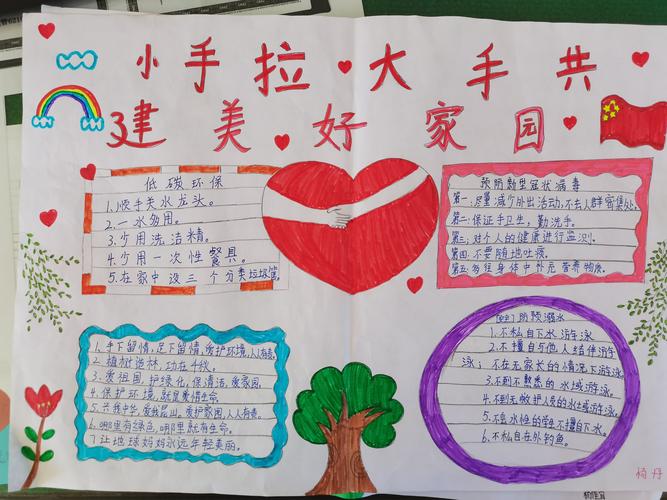 小手拉大手共
建美好家园
低碳环保
1.顺手关水龙头。
2.一水多用。
3.少用洗洁精。
4.少用一次性餐具。
5.在家中设三个分类垃圾筐。
预防新型冠状病毒
第一:尽量减少外出活动,不去人群密集处。
第二:保证手卫生,勤洗手。
第三:对个人的健康进行监测。
第四:不要随地吐痰。
第五:多往身体中补充营养物质。
1.手下留情,足下留情,爱护环境,人人有责。
2.植树造林,功在千秋。
3.爱祖国,护绿化,保清洁,爱家园。
4.保护环境,就是爱惜生命。
5.兴我中华,爱我昆山,爱护家园,人人有责。
6.哪里有绿色,哪里就有生命。
7.让地球妈妈永远年轻美丽。
防预溺水
1.不私自下水游泳
2.不擅自与他人结伴游
泳;不在无家长的情况下游泳
3.不到不熟悉的水域游泳。
4.不到无救护人员的水域游泳。
5.不会水性的学生不擅自下水。
6.不私自在外钓鱼。